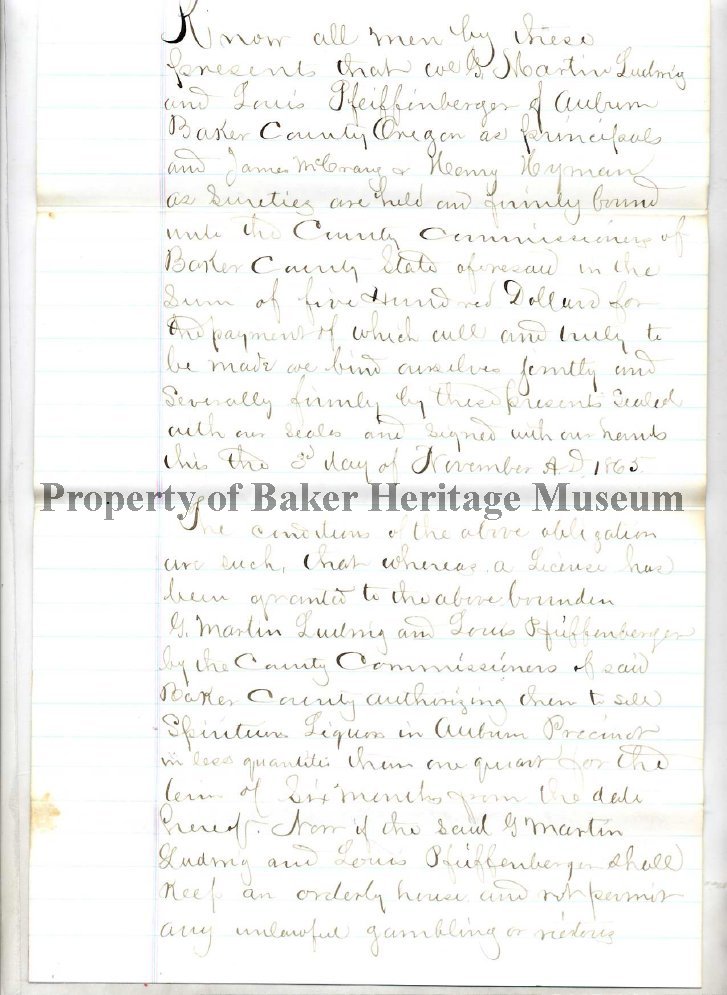 Know all men by these
presents that we G. Martin Ludwig
and Louis Pfeiffenberger of Auburn
Baker County Oregon as principals
and James McCrary & Henry Hyman
as Sureties are held and firmly bound
unto the County Commissioners of
Baker County State aforesaid in the
Sum of five Hundred Dollars for
the payment of which well and truly to
be made we bind ourselves jointly and
Severally firmly by these presents Sealed
with our seals and signed with our hands
this the 3d day of November A.D. 1865.
Property of Baker Heritage Museum
The conditions of the above obligation
are such, that whereas a License has
been granted to the above bounden
G. Martin Ludwig and Louis Pfeiffenberger
by the County Commissioners of said
Baker County authorizing them to sell
Spiritous Liquors in Auburn Precinct
in less quantities than one quart for the
term of Six months from the date
hereof. Now if the said G Martin
Ludwig and Louis Pfeiffenberger shall
Keep an orderly house and not permit
any unlawful gambling or riotous